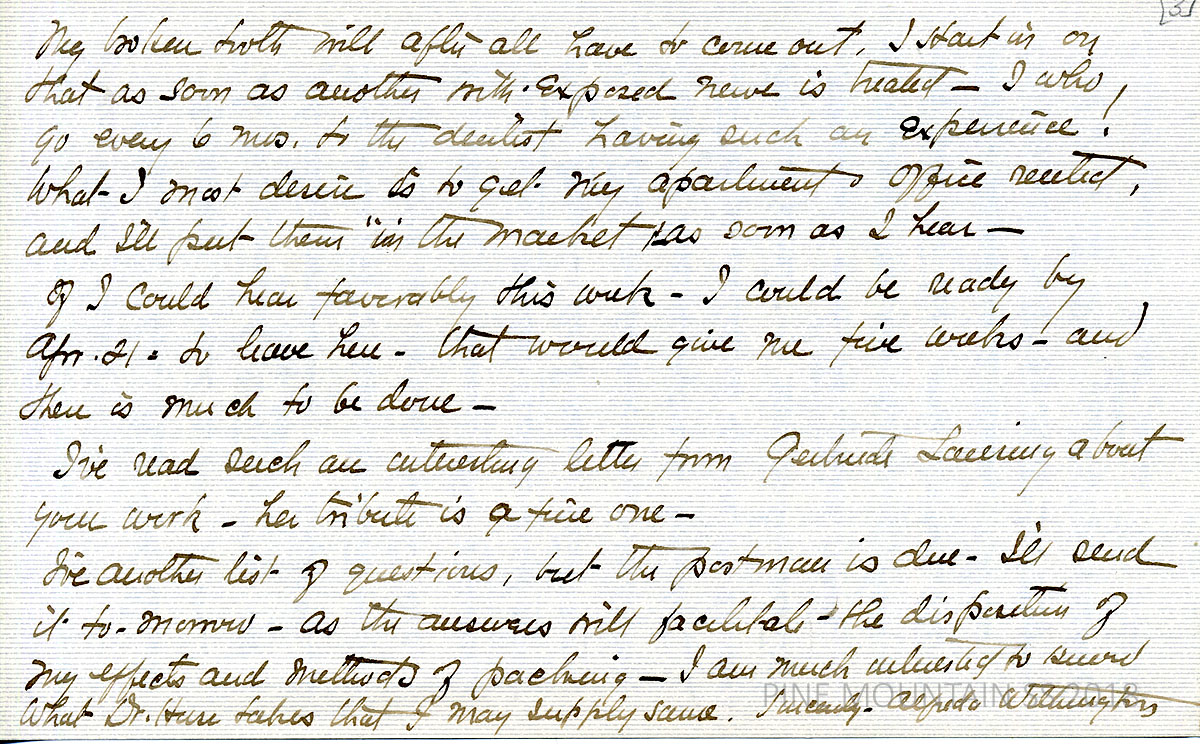 [3]
My broken tooth will after all have to come out. I start in on
that as soon as another with exposed nerve is treated — I who
go every 6 mos. to the dentist having such an experience!
What I most desire is to get my apartment & office rented,
and I'll put them "in the market" as soon as I hear —
If I could hear favorably this week - I could be ready by
Apr. 21 - to leave here - that would give me five weeks - and
there is much to be done —
I've read such an interesting letter from Gertrude Lansing about
your work - her tribute is a fine one -
I've another list of questions, but the postman is due - I'll send
it to-morrow - as the answers will facilitate the disposition of
my effects and methods of packing — I am much interested to know
What Dr. Huse takes that I may supply same. Sincerely - Alfreda Withington
PINE MOUNTAIN S 2018